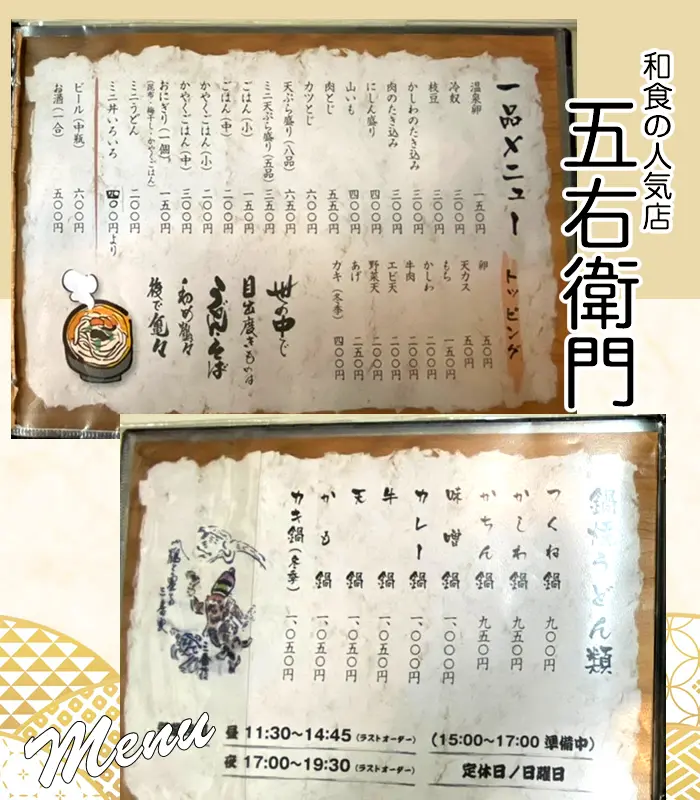 和食の人気店
五右衛門
一品メニュー
温泉卵 一五〇円
冷奴 二〇〇円
枝豆 二〇〇円
かしわのたき込み 三〇〇円
肉のたき込み 三〇〇円
にしん盛り 四〇〇円
山いも 四〇〇円
肉とじ 五五〇円
カツとじ 六〇〇円
天ぷら盛り（八品） 六五〇円
ミニ天ぷら盛り（五品） 三五〇円
ごはん（小） 一五〇円
ごはん（中） 二〇〇円
かやくごはん（小） 二〇〇円
かやくごはん（中） 三〇〇円
おにぎり（一個） 一五〇円
（昆布・梅干し・かやくごはん）
ミニうどん 二〇〇円
ミニ丼いろいろ 四〇〇円より
ビール（中瓶） 六〇〇円
お酒（一合） 五〇〇円
トッピング
卵 五〇円
天カス 五〇円
もち 一五〇円
かしわ 二〇〇円
牛肉 二〇〇円
エビ天 二〇〇円
野菜天 一五〇円
あげ 二五〇円
カキ（冬季） 四〇〇円
世の中で
目出度きものは
うどんにそば
鍋焼うどん類
つくね鍋 九〇〇円
かしわ鍋 九五〇円
かちん鍋 九五〇円
味噌鍋 一、〇〇〇円
カレー鍋 一、〇〇〇円
牛鍋 一、〇五〇円
天鍋 一、〇五〇円
かも鍋 一、〇五〇円
カキ鍋（冬季） 一、〇五〇円
昼 11:30〜14:45（ラストオーダー）（15:00〜17:00 準備中）
夜 17:00〜19:30（ラストオーダー） 定休日／日曜日
Menu